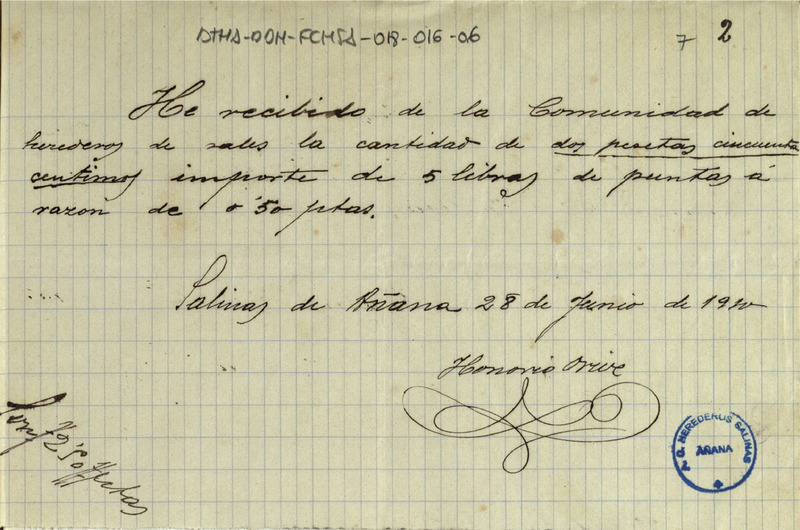 DTHA-DOM-FCHSA-018-016-06
7 2
He recibido de la Comunidad de
herederos de sales la cantidad de dos pesetas cincuenta
centimos importe de 5 libras de puntas á
razon de 0'50 ptas.
Salinas de Añana 28 de Junio de 1910
Honorio Orive
HEREDEROS SALINAS
AÑANA
2'50 Ptas